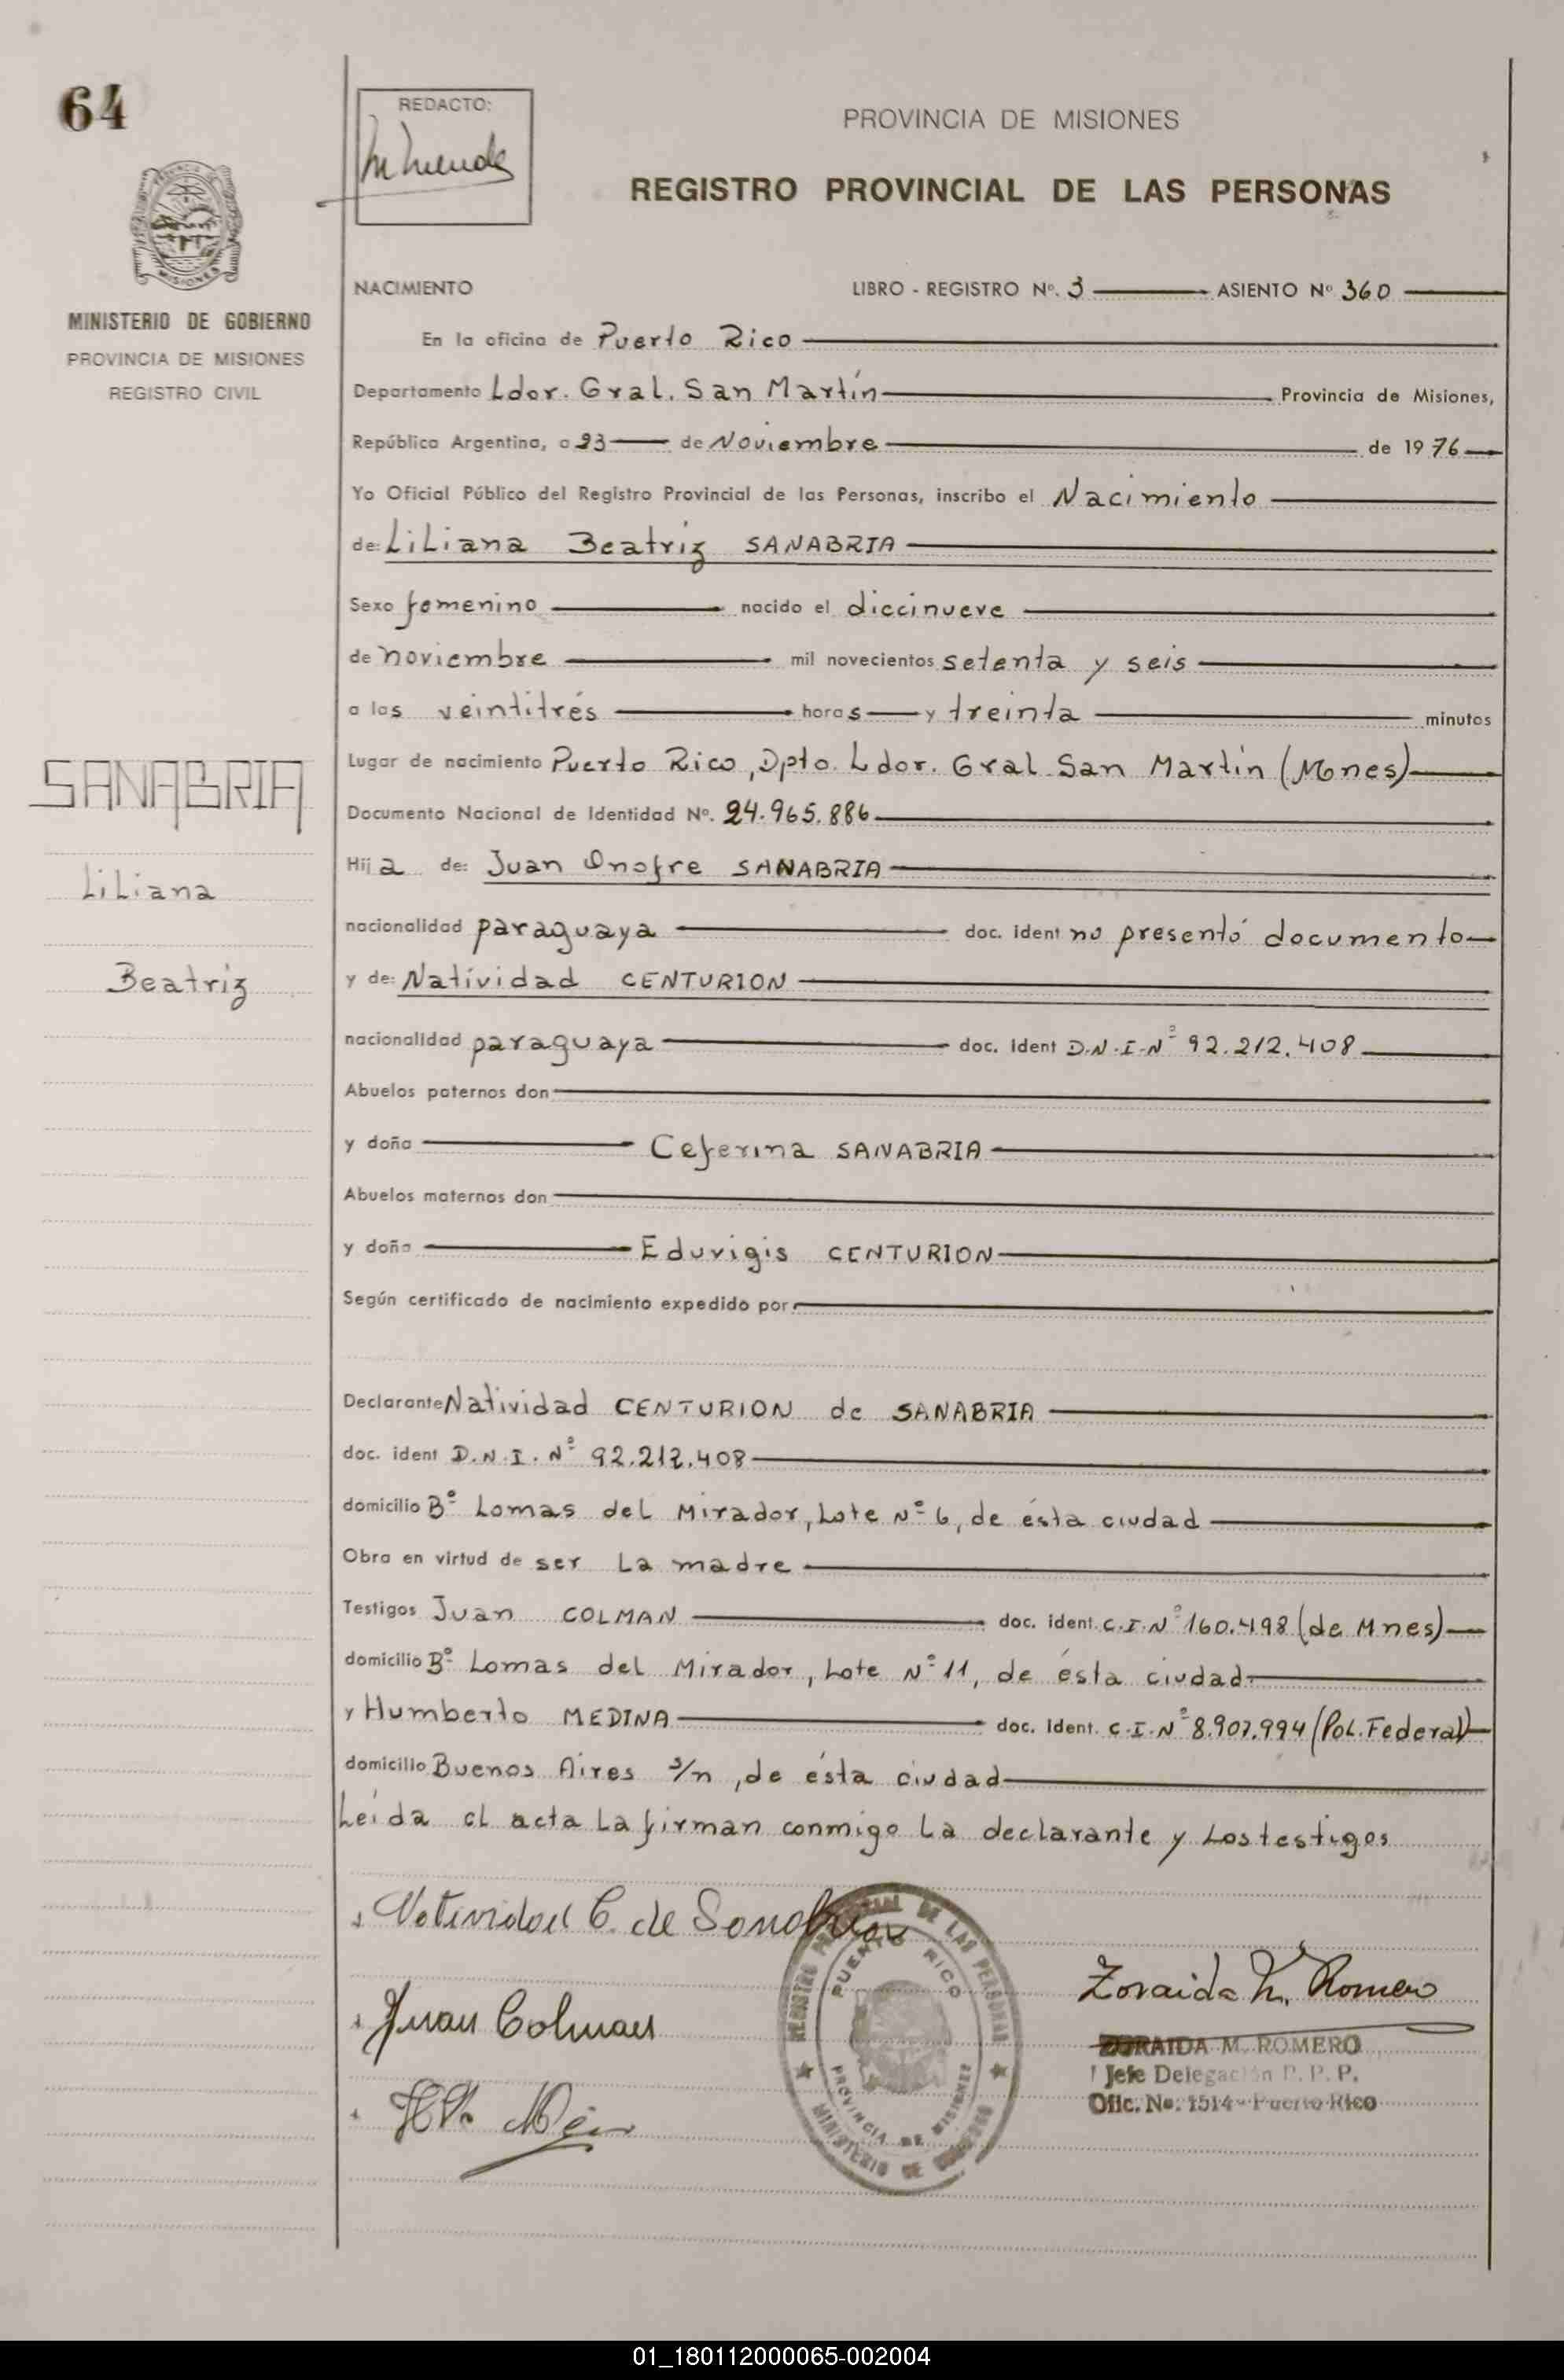 64
REDACTO:
PROVINCIA DE MISIONES
REGISTRO PROVINCIAL DE LAS PERSONAS
MINISTERIO DE GOBIERNO
PROVINCIA DE MISIONES
REGISTRO CIVIL
NACIMIENTO LIBRO - REGISTRO Nº. 3 ASIENTO Nº 360
En la oficina de Puerto Rico
Departamento Ldor. Gral. San Martín Provincia de Misiones,
República Argentina, a 23 de Noviembre de 1976
Yo Oficial Público del Registro Provincial de las Personas, inscribo el Nacimiento
de: Liliana Beatriz SANABRIA
Sexo femenino nacido el diecinueve
de noviembre mil novecientos setenta y seis
a las veintitrés horas y treinta minutos
Lugar de nacimiento Puerto Rico, Dpto. Ldor. Gral. San Martín (Mnes)
Documento Nacional de Identidad Nº. 24.965.886
Hija de: Juan Onofre SANABRIA
nacionalidad paraguaya doc. ident no presentó documento
y de: Natividad CENTURION
nacionalidad paraguaya doc. ident D.N.I-Nº 92.212.408
Abuelos paternos don
y doña Ceferina SANABRIA
Abuelos maternos don
y doña Eduvigis CENTURION
Según certificado de nacimiento expedido por
Declarante Natividad CENTURION de SANABRIA
doc. ident D.N.I. Nº 92.212.408
domicilio Bº Lomas del Mirador, Lote Nº 6, de ésta ciudad
Obra en virtud de ser la madre
Testigos Juan COLMAN doc. ident. C.I.Nº 160.498 (de Mnes)
domicilio Bº Lomas del Mirador, Lote Nº 11, de ésta ciudad
y Humberto MEDINA doc. Ident. C.I.Nº 8.907.994 (Pol. Federal)
domicilio Buenos Aires s/n, de ésta ciudad
Leída el acta la firman conmigo la declarante y los testigos
SANABRIA
Liliana
Beatriz
Natividad C. de Sanabria
Juan Colman
REGISTRO PROVINCIAL DE LAS PERSONAS
PUERTO RICO
PROVINCIA DE MISIONES
MINISTERIO DE GOBIERNO
Zoraida M. Romero
ZORAIDA M. ROMERO
Jefe Delegación R. P. P.
Ofic. No. 1514 - Puerto Rico
01_180112000065-002004